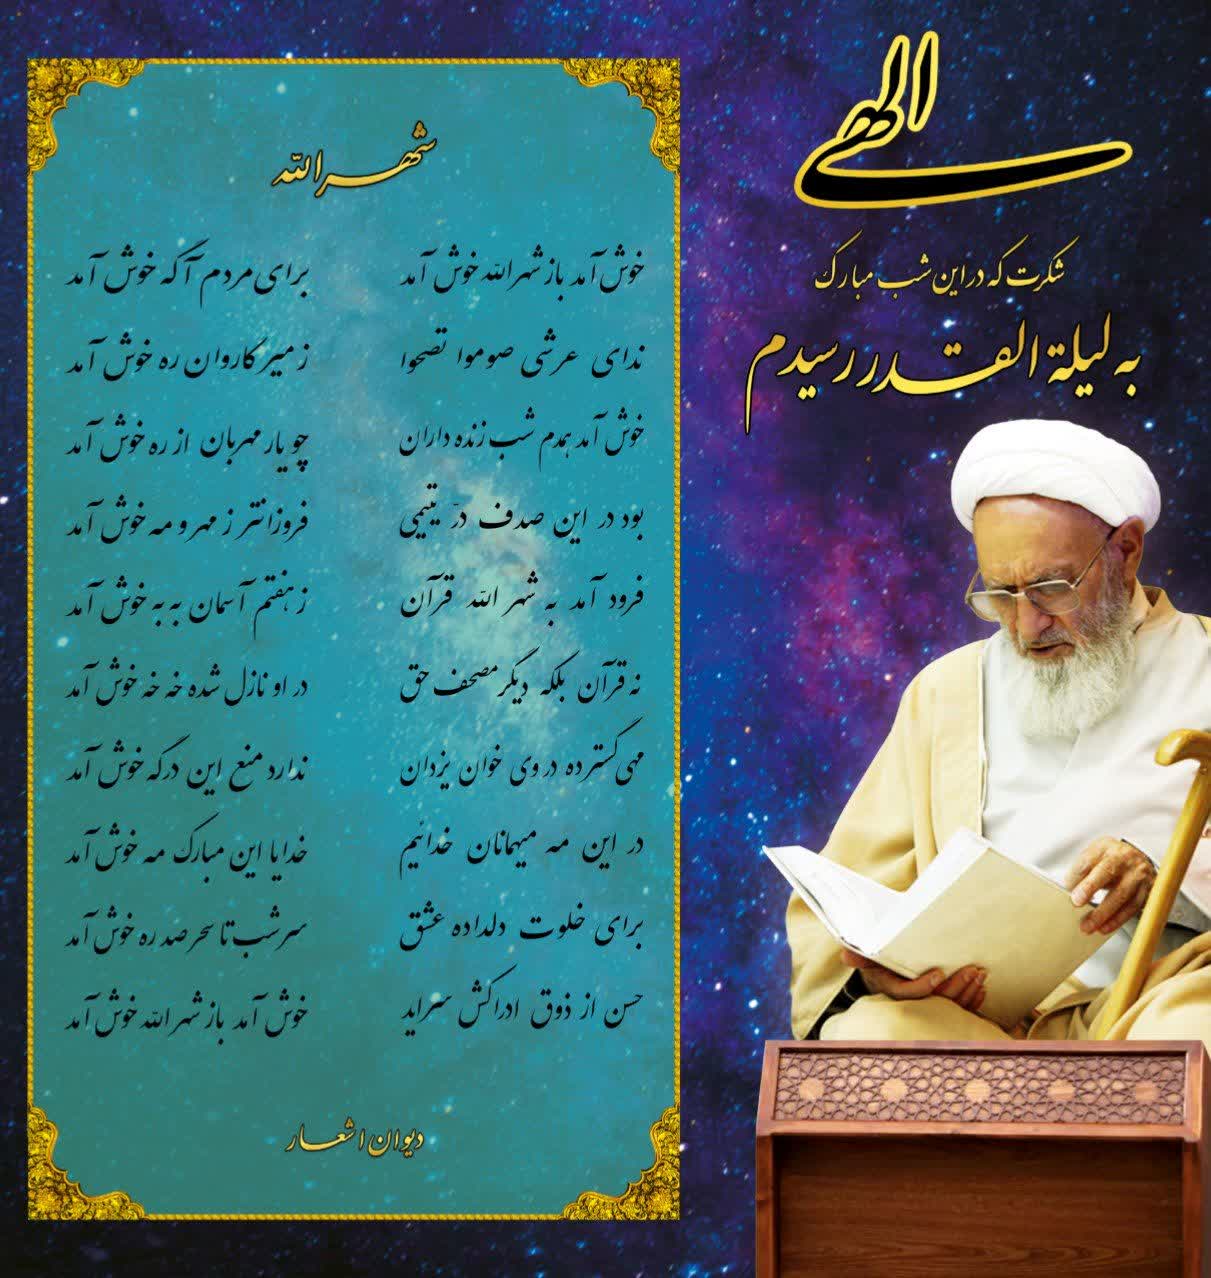 الهی
شکرت که در این شب مبارک
به لیلة القدر رسیدم
شهر الله
خوش آمد باز شهرالله خوش آمد برای مردم آگه خوش آمد
ندای عرشی صوموا تصحوا ز میر کاروان ره خوش آمد
خوش آمد همدم شب زنده داران چو یار مهربان از ره خوش آمد
بود در این صدف درّ یتیمی فروزانتر ز مهر و مه خوش آمد
فرود آمد به شهر الله قرآن ز هفتم آسمان به به خوش آمد
نه قرآن بلکه دیگر مصحف حق در او نازل شده خه خه خوش آمد
مهی گسترده در وی خوان یزدان ندارد منع این درگه خوش آمد
در این مه میهمانان خدائیم خدایا این مبارک مه خوش آمد
برای خلوت دلداده عشق سر شب تا سحر صد ره خوش آمد
حسن از ذوق ادراکش سراید خوش آمد باز شهرالله خوش آمد
دیوان اشعار